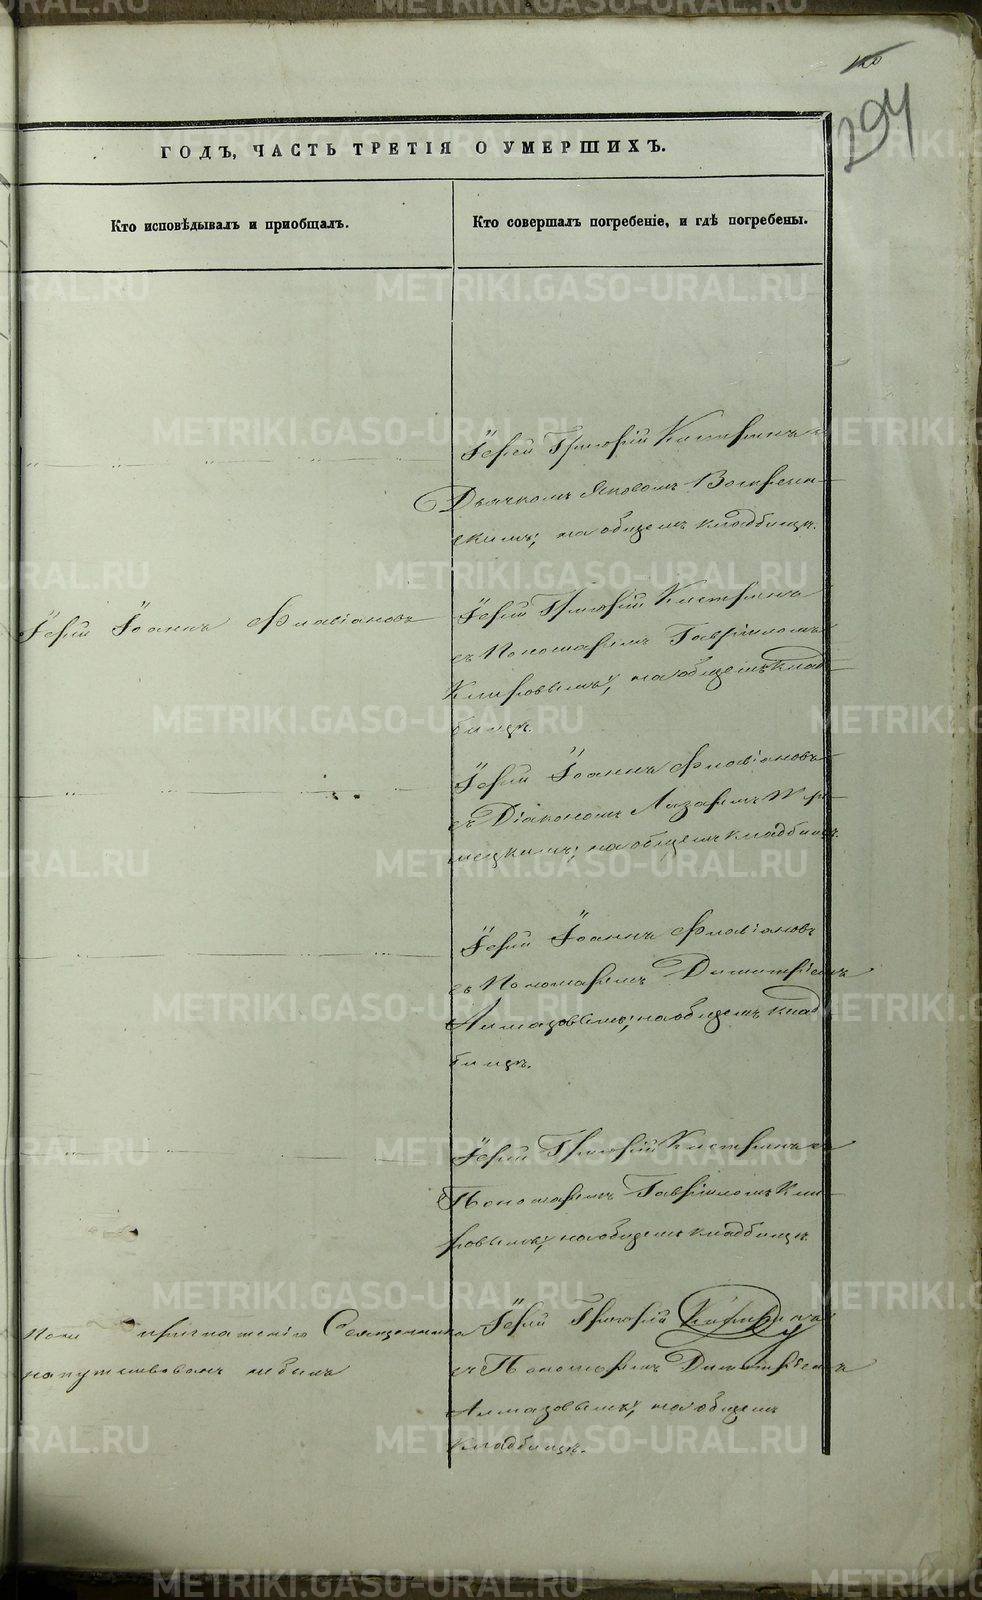 294
ГОДЪ, ЧАСТЬ ТРЕТІЯ О УМЕРШИХЪ.
Кто исповѣдывалъ и пріобщалъ.
Кто совершалъ погребеніе, и гдѣ погребены.
Іерей Григорій Кастринъ с
Дьячкомъ Яковомъ Воскресен-
скимъ; на общемъ кладбищѣ.
Іерей Іоаннъ Флавіановъ
Іерей Григорій Кастринъ
съ Пономаремъ Гавріиломъ
Кировымъ, на общемъ клад-
бищѣ.
Іерей Іоаннъ Флавіановъ
съ Діакономъ Лазаремъ
на общемъ кладбищѣ.
Іерей Іоаннъ Флавіановъ
съ Пономаремъ Димитріемъ
Алмазовымъ; на общемъ клад
бищѣ.
Іерей Григорій Кастринъ съ
Пономаремъ Гавріиломъ Ки-
ровымъ, на общемъ кладбищѣ.
приглашенію Священника
напутствованъ не былъ
Іерей Григорій
съ Пономаремъ Димитріемъ
Алмазовымъ, на общемъ
кладбищѣ.
METRIKI.GASO-URAL.RU